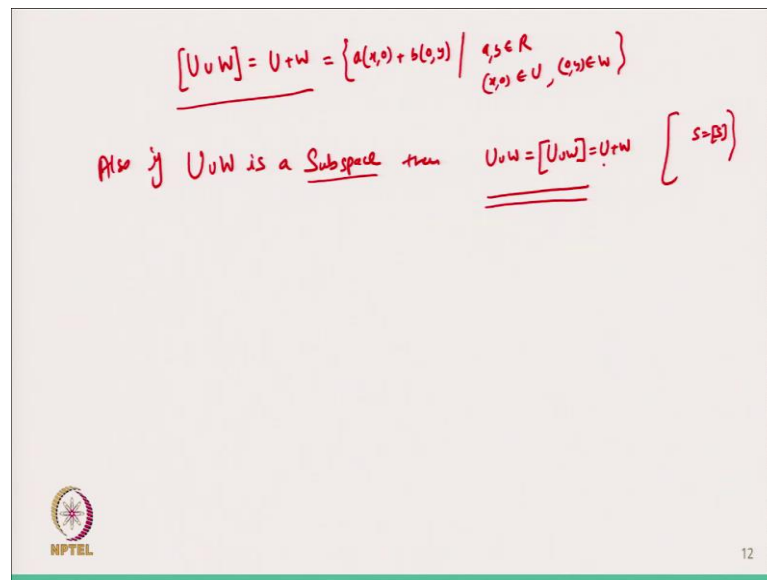 [U∪W] = U+W = {a(x,0) + b(0,y) | a,b ∈ R
(x,0) ∈ U, (0,y) ∈ W}
Also if U∪W is a Subspace then U∪W = [U∪W] = U+W [ S=[S] ]
NPTEL
12